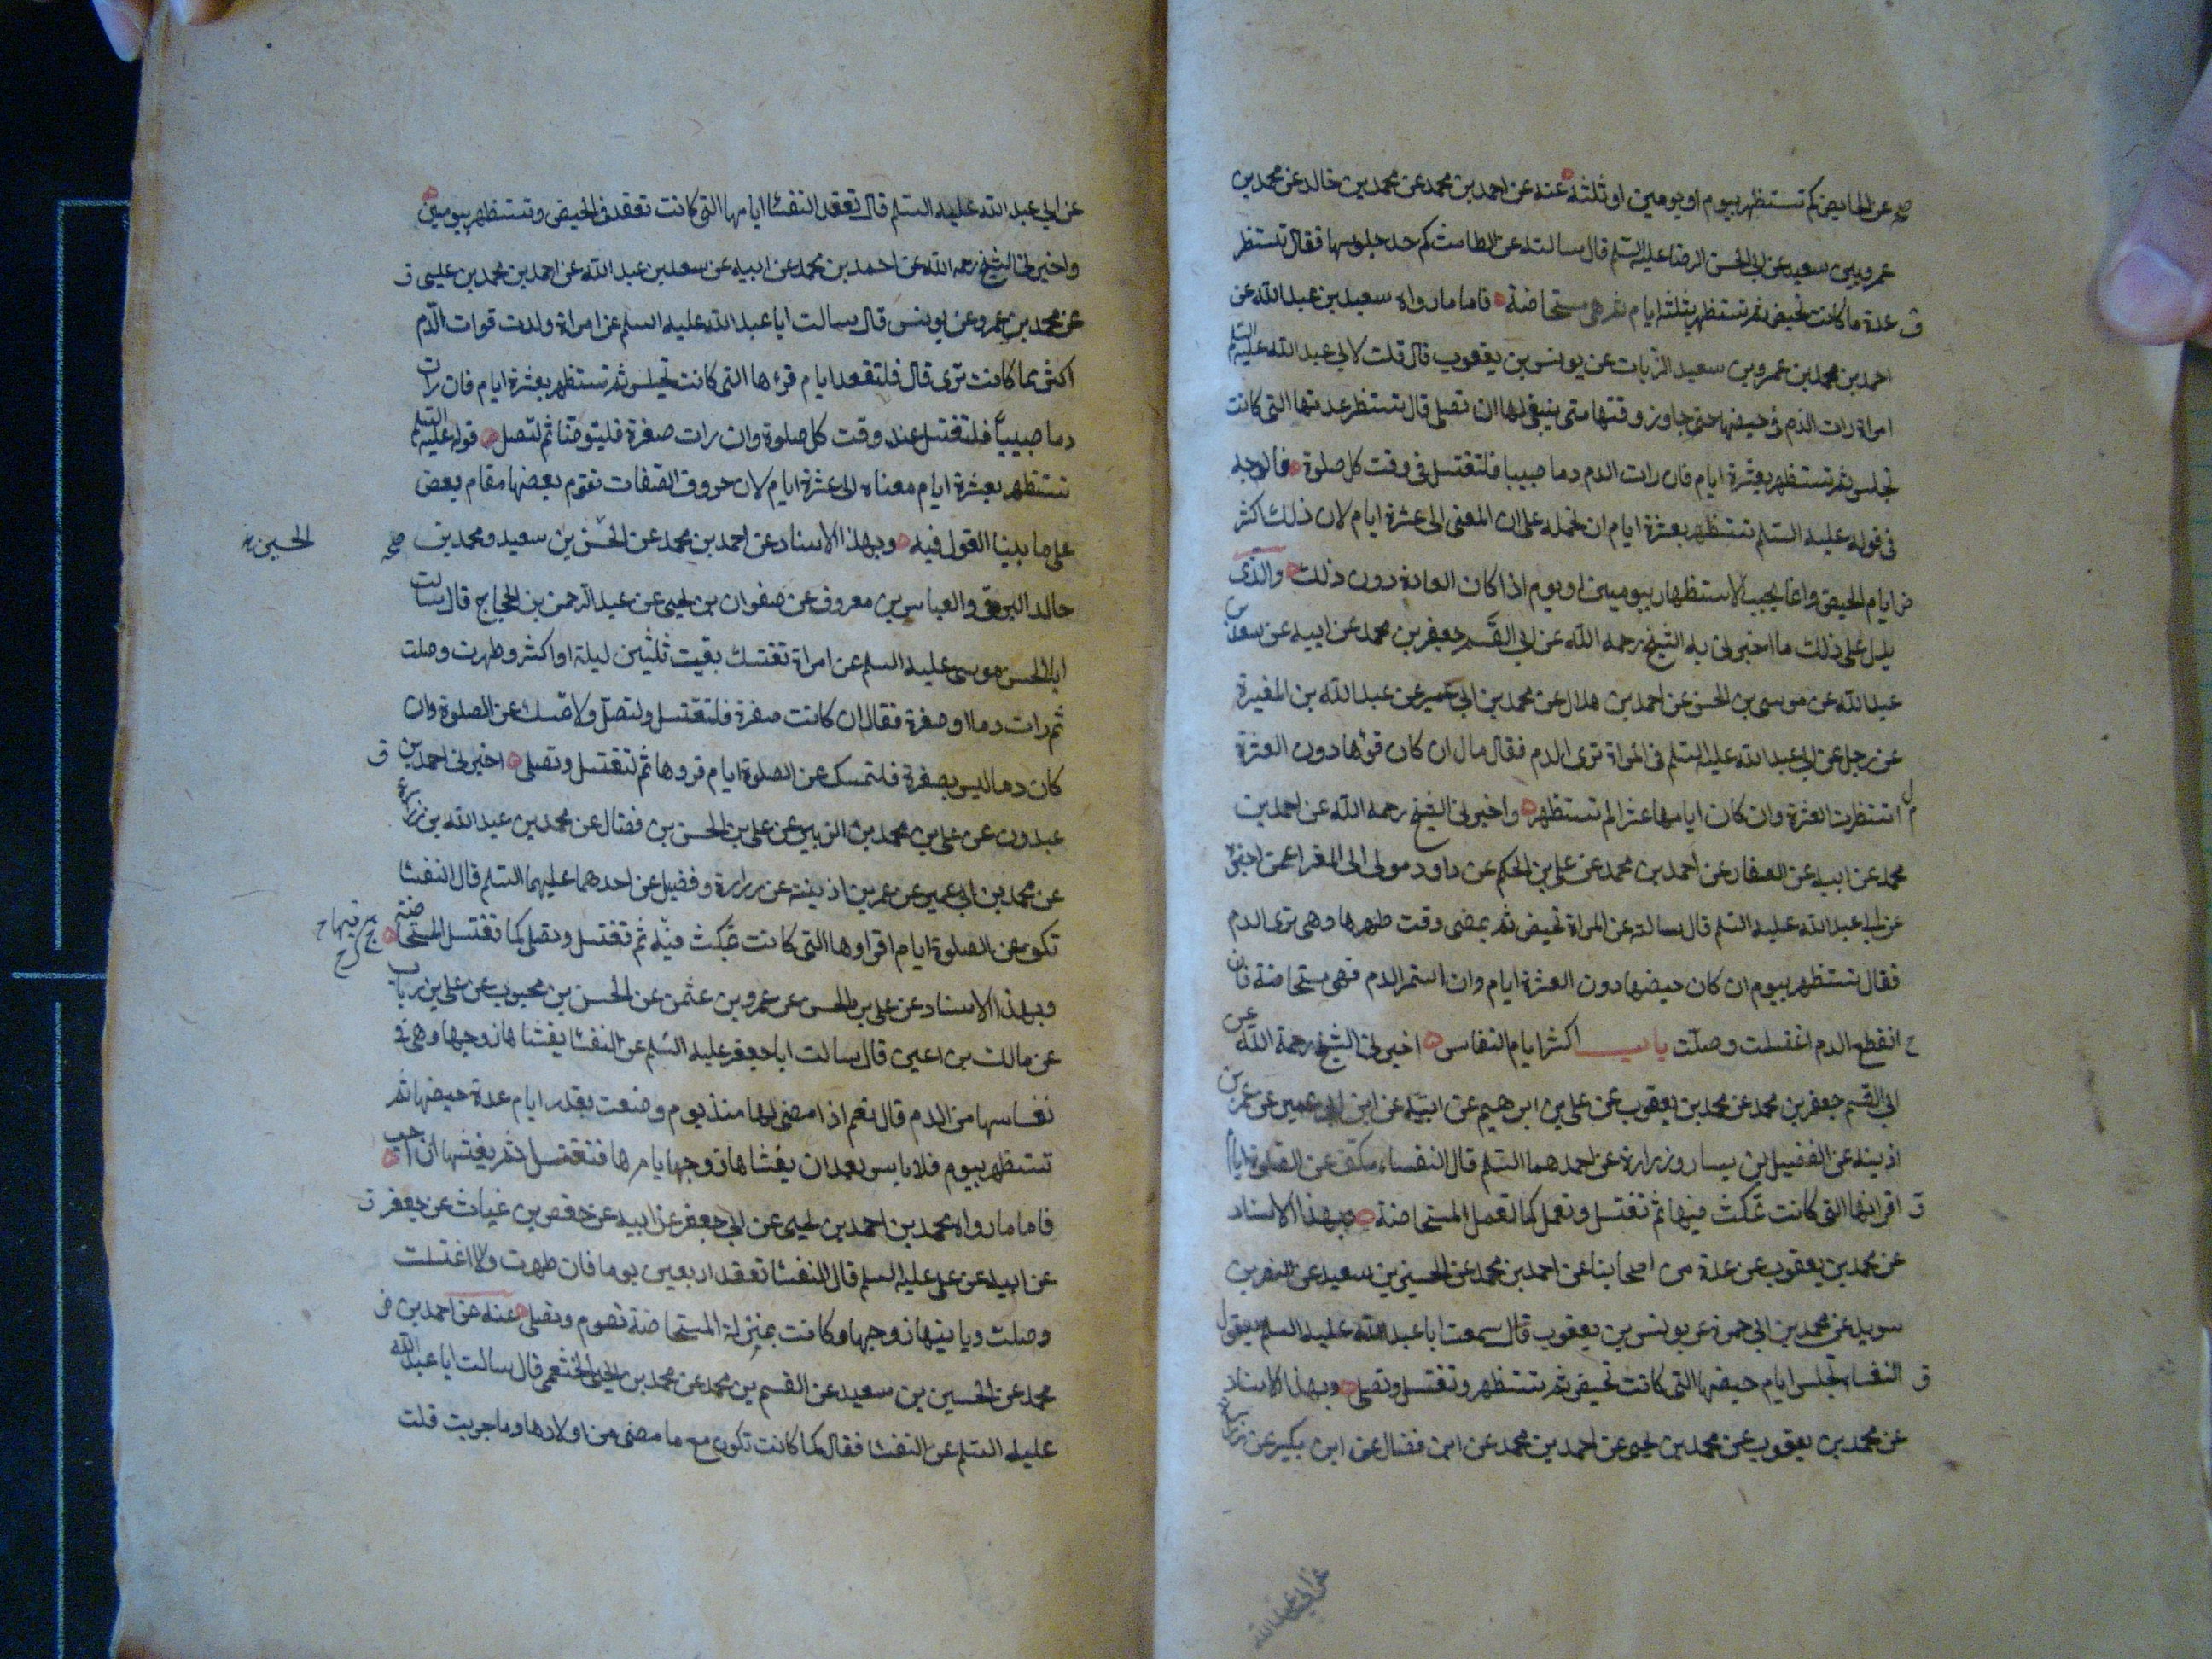 عن الحايض كم تستظهر بيوم او يومين او ثلثة عنه عن احمد بن محمد عن محمد بن خالد عن محمد بن
عمرو بن سعيد عن ابي الحسن الرضا عليه السلم قال سالته عن الطامث كم حد جلوسها فقال تنتظر
عدة ما كانت تحيض ثم تستظهر بثلثة ايام ثم هي مستحاضة فاما ما رواه سعد بن عبد الله عن
احمد بن محمد بن عمرو بن سعيد الزيات عن يونس بن يعقوب قال قلت لابي عبد الله عليه السلم
امراة رات الدم في حيضها حتى جاوز وقتها متى ينبغي لها ان تصلى قال تنتظر عدتها التى كانت
تجلس ثم تستظهر بعشرة ايام فان رات الدم دما صبيبا فلتغتسل في وقت كل صلوة فالوجه
في قوله عليه السلم تستظهر بعشرة ايام ان نحمله على ان المعنى الى عشرة ايام لان ذلك اكثر
من ايام الحيض وانما يجب الاستظهار بيومين او يوم اذا كان العادة دون ذلك والذى
يدل على ذلك ما اخبرني به الشيخ رحمه الله عن ابي القسم جعفر بن محمد عن ابيه عن سعد بن
عبد الله عن موسى بن الحسن عن احمد بن هلال عن محمد بن ابي عمير عن عبد الله بن المغيرة
عن رجل عن ابي عبد الله عليه السلم في المراة ترى الدم فقال مال ان كان قرؤها دون العشرة
انتظرت العشرة وان كان ايامها عشرا لم تستظهر واخبرني الشيخ رحمه الله عن احمد بن
محمد عن ابيه عن الصفار عن احمد بن محمد عن علي بن الحكم عن داود مولى ابى المغرا عمن اخبره
عن ابي عبد الله عليه السلم قال سالته عن المراة تحيض ثم يمضى وقت طهرها وهى ترى الدم
فقال تستظهر بيوم ان كان حيضها دون العشرة ايام وان استمر الدم فهى مستحاضة فان
انقطع الدم اغتسلت وصلت باب اكثر ايام النفاس اخبرني الشيخ رحمة الله عن
ابي القسم جعفر بن محمد عن محمد بن يعقوب عن علي بن ابرهيم عن ابيه عن ابن ابي عمير عن عمر بن
اذينة عن الفضيل بن يسار وزرارة عن احدهما السلم قال النفساء تكف عن الصلوة ايام
اقرائها التى كانت تمكث فيها ثم تغتسل وتعمل كما تعمل المستحاضة وبهذا الاسناد
عن محمد بن يعقوب عن عدة من اصحابنا عن احمد بن محمد عن الحسين بن سعيد عن النضر بن
سويد عن محمد بن ابي حمزة عن يونس بن يعقوب قال سمعت ابا عبد الله عليه السلم يقول
النفساء تجلس ايام حيضها التى كانت تحيض ثم تستظهر وتغتسل وتصلي وبهذا الاسناد
عن محمد بن يعقوب عن محمد بن يحيى عن احمد بن محمد عن ابن فضال عن ابن بكير عن زرارة
عن ابي عبد الله
عن ابي عبد الله عليه السلم قال تقعد النفسا ايامها التى كانت تقعد في الحيض وتستظهر بيومين
واخبرني الشيخ رحمه الله عن احمد بن محمد عن ابيه عن سعد بن عبد الله عن احمد بن محمد بن عيسى
عن محمد بن عمرو عن يونس قال سالت ابا عبد الله عليه السلم عن امراة ولدت فرات الدم
اكثر مما كانت ترى قال فلتقعد ايام قرءها التى كانت تجلس ثم تستظهر بعشرة ايام فان رات
دما صبيبا فلتغتسل عند وقت كل صلوة وان رات صفرة فليتوضا ثم لتصل قوله عليه السلم
تستظهر بعشرة ايام معناه الى عشرة ايام لان حروف الصفات تقوم بعضها مقام بعض
على ما بينا القول فيه وبهذا الاسناد عن احمد بن محمد عن الحسن بن سعيد ومحمد بن
الحسين
خالد البرقي والعباس بن معروف عن صفوان بن يحيى عن عبد الرحمن بن الحجاج قال سالت
ابا الحسن موسى عليه السلم عن امراة نفست بقيت ثلثين ليلة او اكثر وطهرت وصلت
ثم رات دما او صفرة فقال ان كانت صفرة فلتغتسل ولتصل ولا تمسك عن الصلوة وان
كان دما ليس بصفرة فلتمسك عن الصلوة ايام قروها ثم لتغتسل وتصلى اخبرني احمد بن
عبدون عن علي بن محمد بن الزبير عن علي بن الحسن بن فضال عن محمد بن عبد الله بن زرارة
عن محمد بن ابي عمير عن عمر بن اذينة عن زرارة وفضيل عن احدهما عليهما السلم قال النفسا
تكف عن الصلوة ايام اقراوها التى كانت تمكث فيه ثم تغتسل وتصلى كما تغتسل المستحاضة
فيها
وبهذا الاسناد عن علي بن الحسن عن عمرو بن عثمن عن الحسن بن محبوب عن علي بن رياب
عن مالك بن اعين قال سالت ابا جعفر عليه السلم عن النفسا يغشاها زوجها وهى في
نفاسها من الدم قال نعم اذا مضى لها منذ يوم وضعت بقدر ايام عدة حيضها ثم
تستظهر بيوم فلا باس بعد ان يغشاها زوجها يامرها فتغتسل ثم يغشها ان احب
فاما ما رواه محمد بن احمد بن يحيى عن ابي جعفر عن ابيه عن حفص بن غياث عن جعفر
عن ابيه عن علي عليه السلم قال النفسا تقعد اربعين يوما فان طهرت والا اغتسلت
وصلت وياتيها زوجها وكانت بمنزلة المستحاضة تصوم وتصلى عنه عن احمد بن
محمد عن الحسين بن سعيد عن القسم بن محمد عن محمد بن يحيى الخثعمى قال سالت ابا عبد الله
عليه السلم عن النفسا فقال كما كانت تكون مع ما مضى من اولادها وما جربت قلت